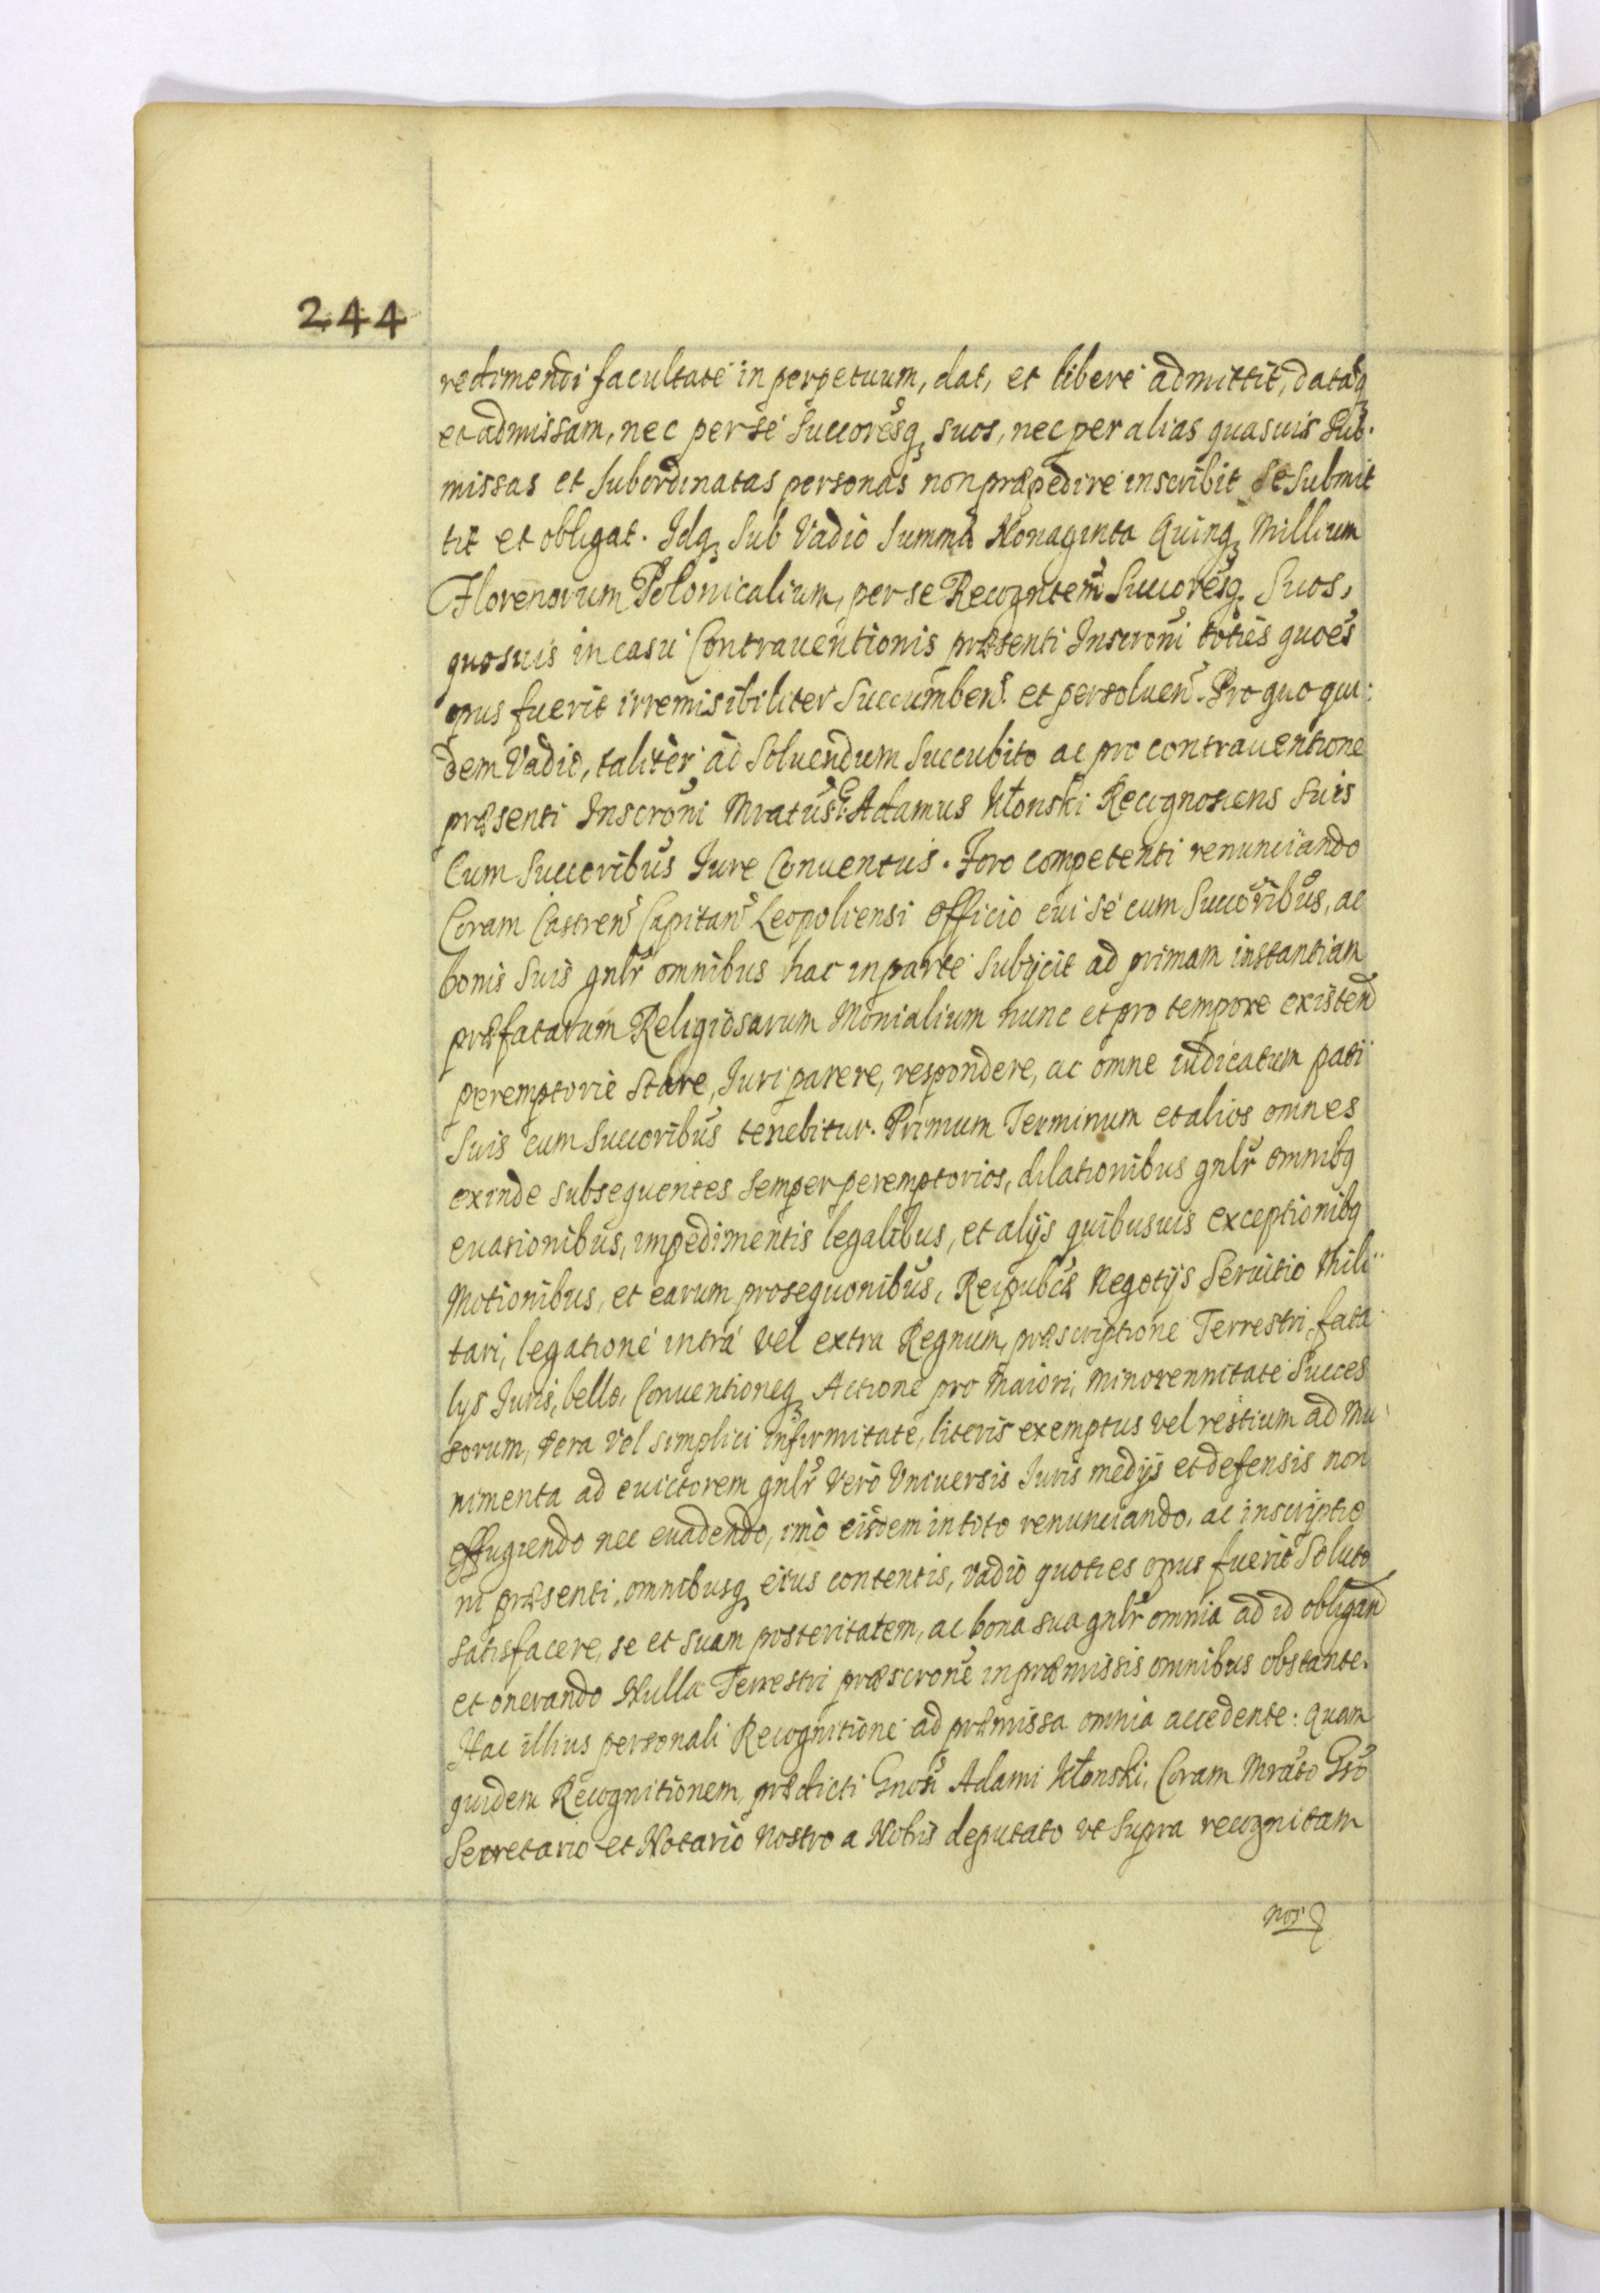 244
redimendi facultate in perpetuum, dat, et libere admittit, datāq
et admissam, nec per se Succoresq, suos, nec per alias quasuis Sub-
missas et Subordinatas personas non præpedire inscribit se Submit
tit et obligat. Idq, Sub Vadio Summa Nonaginta Quinq, Millium
Florenorum Polonicalium, per se Recogntem Succoresq. Suos,
quosuis in casu Contrauentionis præsenti Inscroni toties quoes
opus fuerit irremisibiliter Succumben. et persoluen. Pro quo qui:
dem Vadio, taliter ad Soluendum Succubito ac pro contrauentione
præsenti Inscroni Mratus G. Adamus Kłonski Recognoscens Suis
Cum Succoribus Iure Conuentus. Foro competenti renunciando
Coram Castren Capitan Leopoliensi officio cui se cum Succoribus, ac
bonis Suis gnlr omnibus hac in parte Subijcit ad primam instantiam
præfatarum Religiosarum Monialium nunc et pro tempore existend
peremptorie Stare, Iuri parere, respondere, ac omne iudicatum pati
Suis cum Succoribus tenebitur. Primum Terminum et alios omnes
exinde subsequentes Semper peremptorios, dilationibus gnlr omnibq
euasionibus, impedimentis legalibus, et alijs quibusuis exceptionibq
Motionibus, et earum prosequonibus, Reipubca Negotijs Seruitio Mili-
tari, legatione intra vel extra Regnum, præscriptione Terrestri, fata
lys Iuris, bello, Conuentioneq, Actione pro Maiori, Minorennitate Succes
sorum, vera vel simplici infirmitate, literis exemptus vel restium ad Mu
nimenta ad euictorem gnlr Vero Vniuersis Iuris medijs et defensis non
effugiendo nec euadendo, imo eisdem in toto renunciando, ac inscriptio
ni præsenti, omnibusq, eius contentis, vadio quoties opus fuerit Soluto
satisfacere, se et suam posteritatem, ac bona sua gnlr omnia ad id obligand
et onerando Nulla Terrestri præscrone in præmissis omnibus obstante.
Hac illius personali Recognitione ad præmissa omnia accedente: Quam
quidem Recognitionem, prædicti Gnosi Adami Kłonski, Coram Mrato Gso
Secretario et Notario Nostro a Nobis deputato vt Supra recognitam